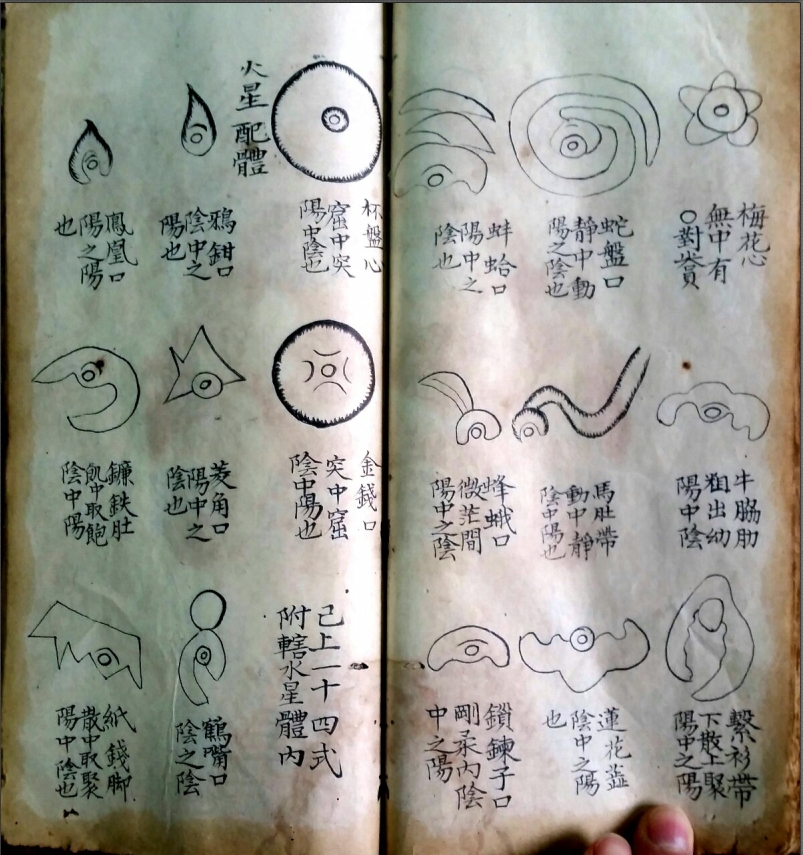 梅花心
無中有
○對賞
牛脇肋
粗出幼
陽中陰
繫衫帶
下散上聚
陽中之陽
蛇盤口
靜中動
陽之陰也
馬肚帶
動中靜
陰中陽也
蓮花蕋
陰中之陽
也
蚌蛤口
陽中之
陰也
蜂蛾口
微茫間
陽中之陰
鎖鍊子口
剛柔內陰
中之陽
杯盤心
窟中突
陽中陰也
金錢口
突中窟
陰中陽也
已上一十四式
附轄水星體內
火星配體
鴉鉗口
陰中之
陽也
菱角口
陽中之
陰也
鶴嘴口
陰之陰
鳳凰口
陽之陽
也
鐮鉄肚
飢中取飽
陰中陽
紙錢脚
散中取聚
陽中陰也